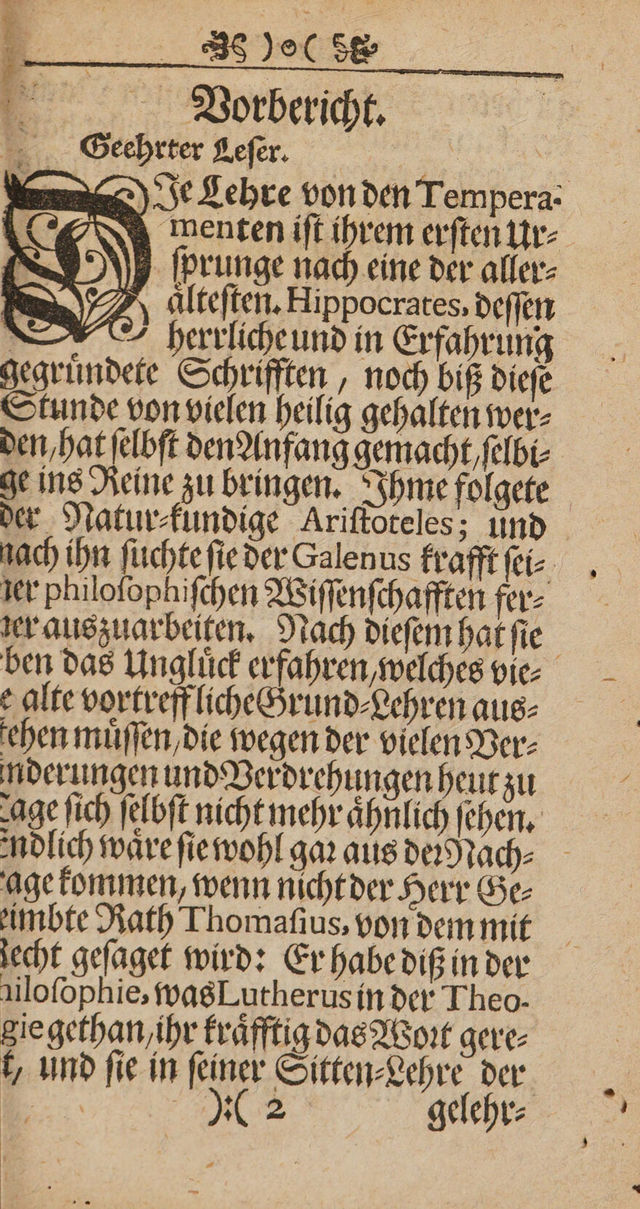 )o(
Vorbericht.
Geehrter Leſer.
DIe Lehre von den Tempera-
menten iſt ihrem erſten Ur-
ſprunge nach eine der aller-
aͤlteſten. Hippocrates, deſſen
herrliche und in Erfahrung
gegruͤndete Schrifften, noch biß dieſe
Stunde von vielen heilig gehalten wer-
den, hat ſelbſt den Anfang gemacht, ſelbi-
ge ins Reine zu bringen. Ihme folgete
der Natur-kundige Ariſtoteles; und
nach ihn ſuchte ſie der Galenus krafft ſei-
ner philoſophiſchen Wiſſenſchafften fer-
ner auszuarbeiten. Nach dieſem hat ſie
ben das Ungluͤck erfahren, welches vie-
e alte vortreffliche Grund-Lehren aus-
tehen muͤſſen, die wegen der vielen Ver-
nderungen und Verdrehungen heut zu
Tage ſich ſelbſt nicht mehr aͤhnlich ſehen.
Endlich waͤre ſie wohl gar aus der Nach-
rage kommen, wenn nicht der Herr Ge-
eimbte Rath Thomaſius, von dem mit
Recht geſaget wird: Er habe diß in der
hiloſophie, was Lutherus in der Theo-
gie gethan, ihr kraͤfftig das Wort gere-
t, und ſie in ſeiner Sitten-Lehre der
):( 2 gelehr-